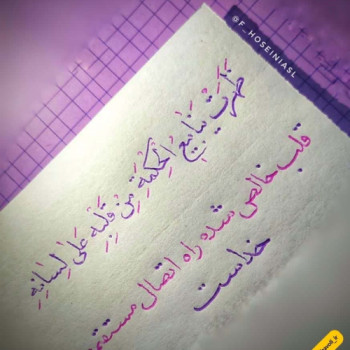 @F_HOSEINIASL
ظَهَرَت يَنَابِيعُ الْحِكْمَةِ مِنْ قَلْبِهِ عَلَىٰ لِسَانِهِ
قلب خالص شده راه اتصال مستقیم
خداست